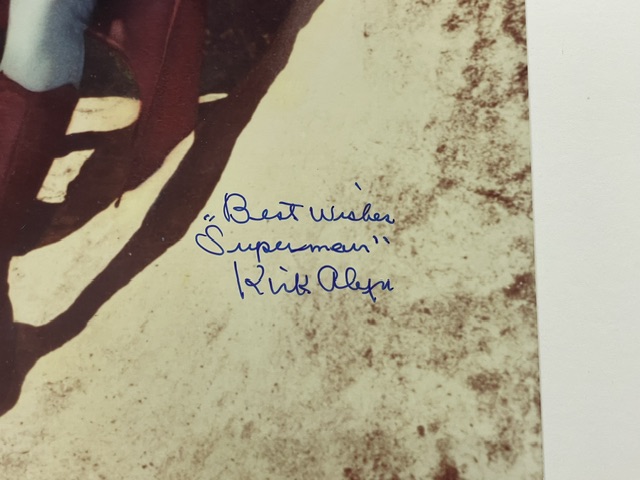 "Best Wishes
Superman"
Kirk Alyn